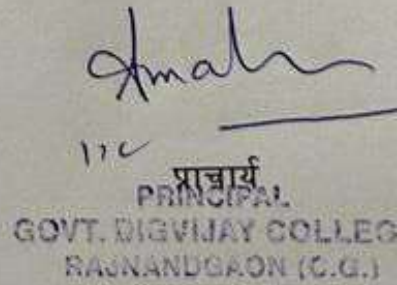 प्राचार्य
PRINCIPAL
GOVT. DIGVIJAY COLLEG
RAJNANDGAON (C.G.)